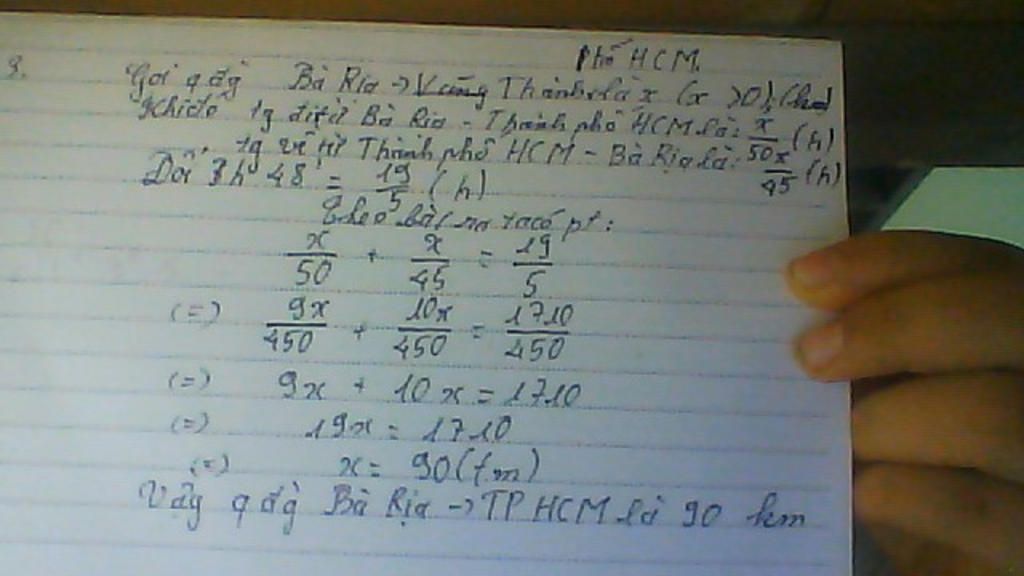 phố HCM.
3. Gọi q đg Bà Rịa → Vũng Thành là x (x >0) (km)
Khi đó tg đi từ Bà Rịa - Thành phố HCM là: x/50 (h)
tg về từ Thành phố HCM - Bà Rịa là: x/45 (h)
Đổi 3h 48' = 19/5 (h)
Theo bài ra ta có pt:
x/50 + x/45 = 19/5
(=) 9x/450 + 10x/450 = 1710/450
(=) 9x + 10x = 1710
(=) 19x = 1710
(=) x = 90 (tm)
Vậy q đg Bà Rịa → TP HCM là 90 km